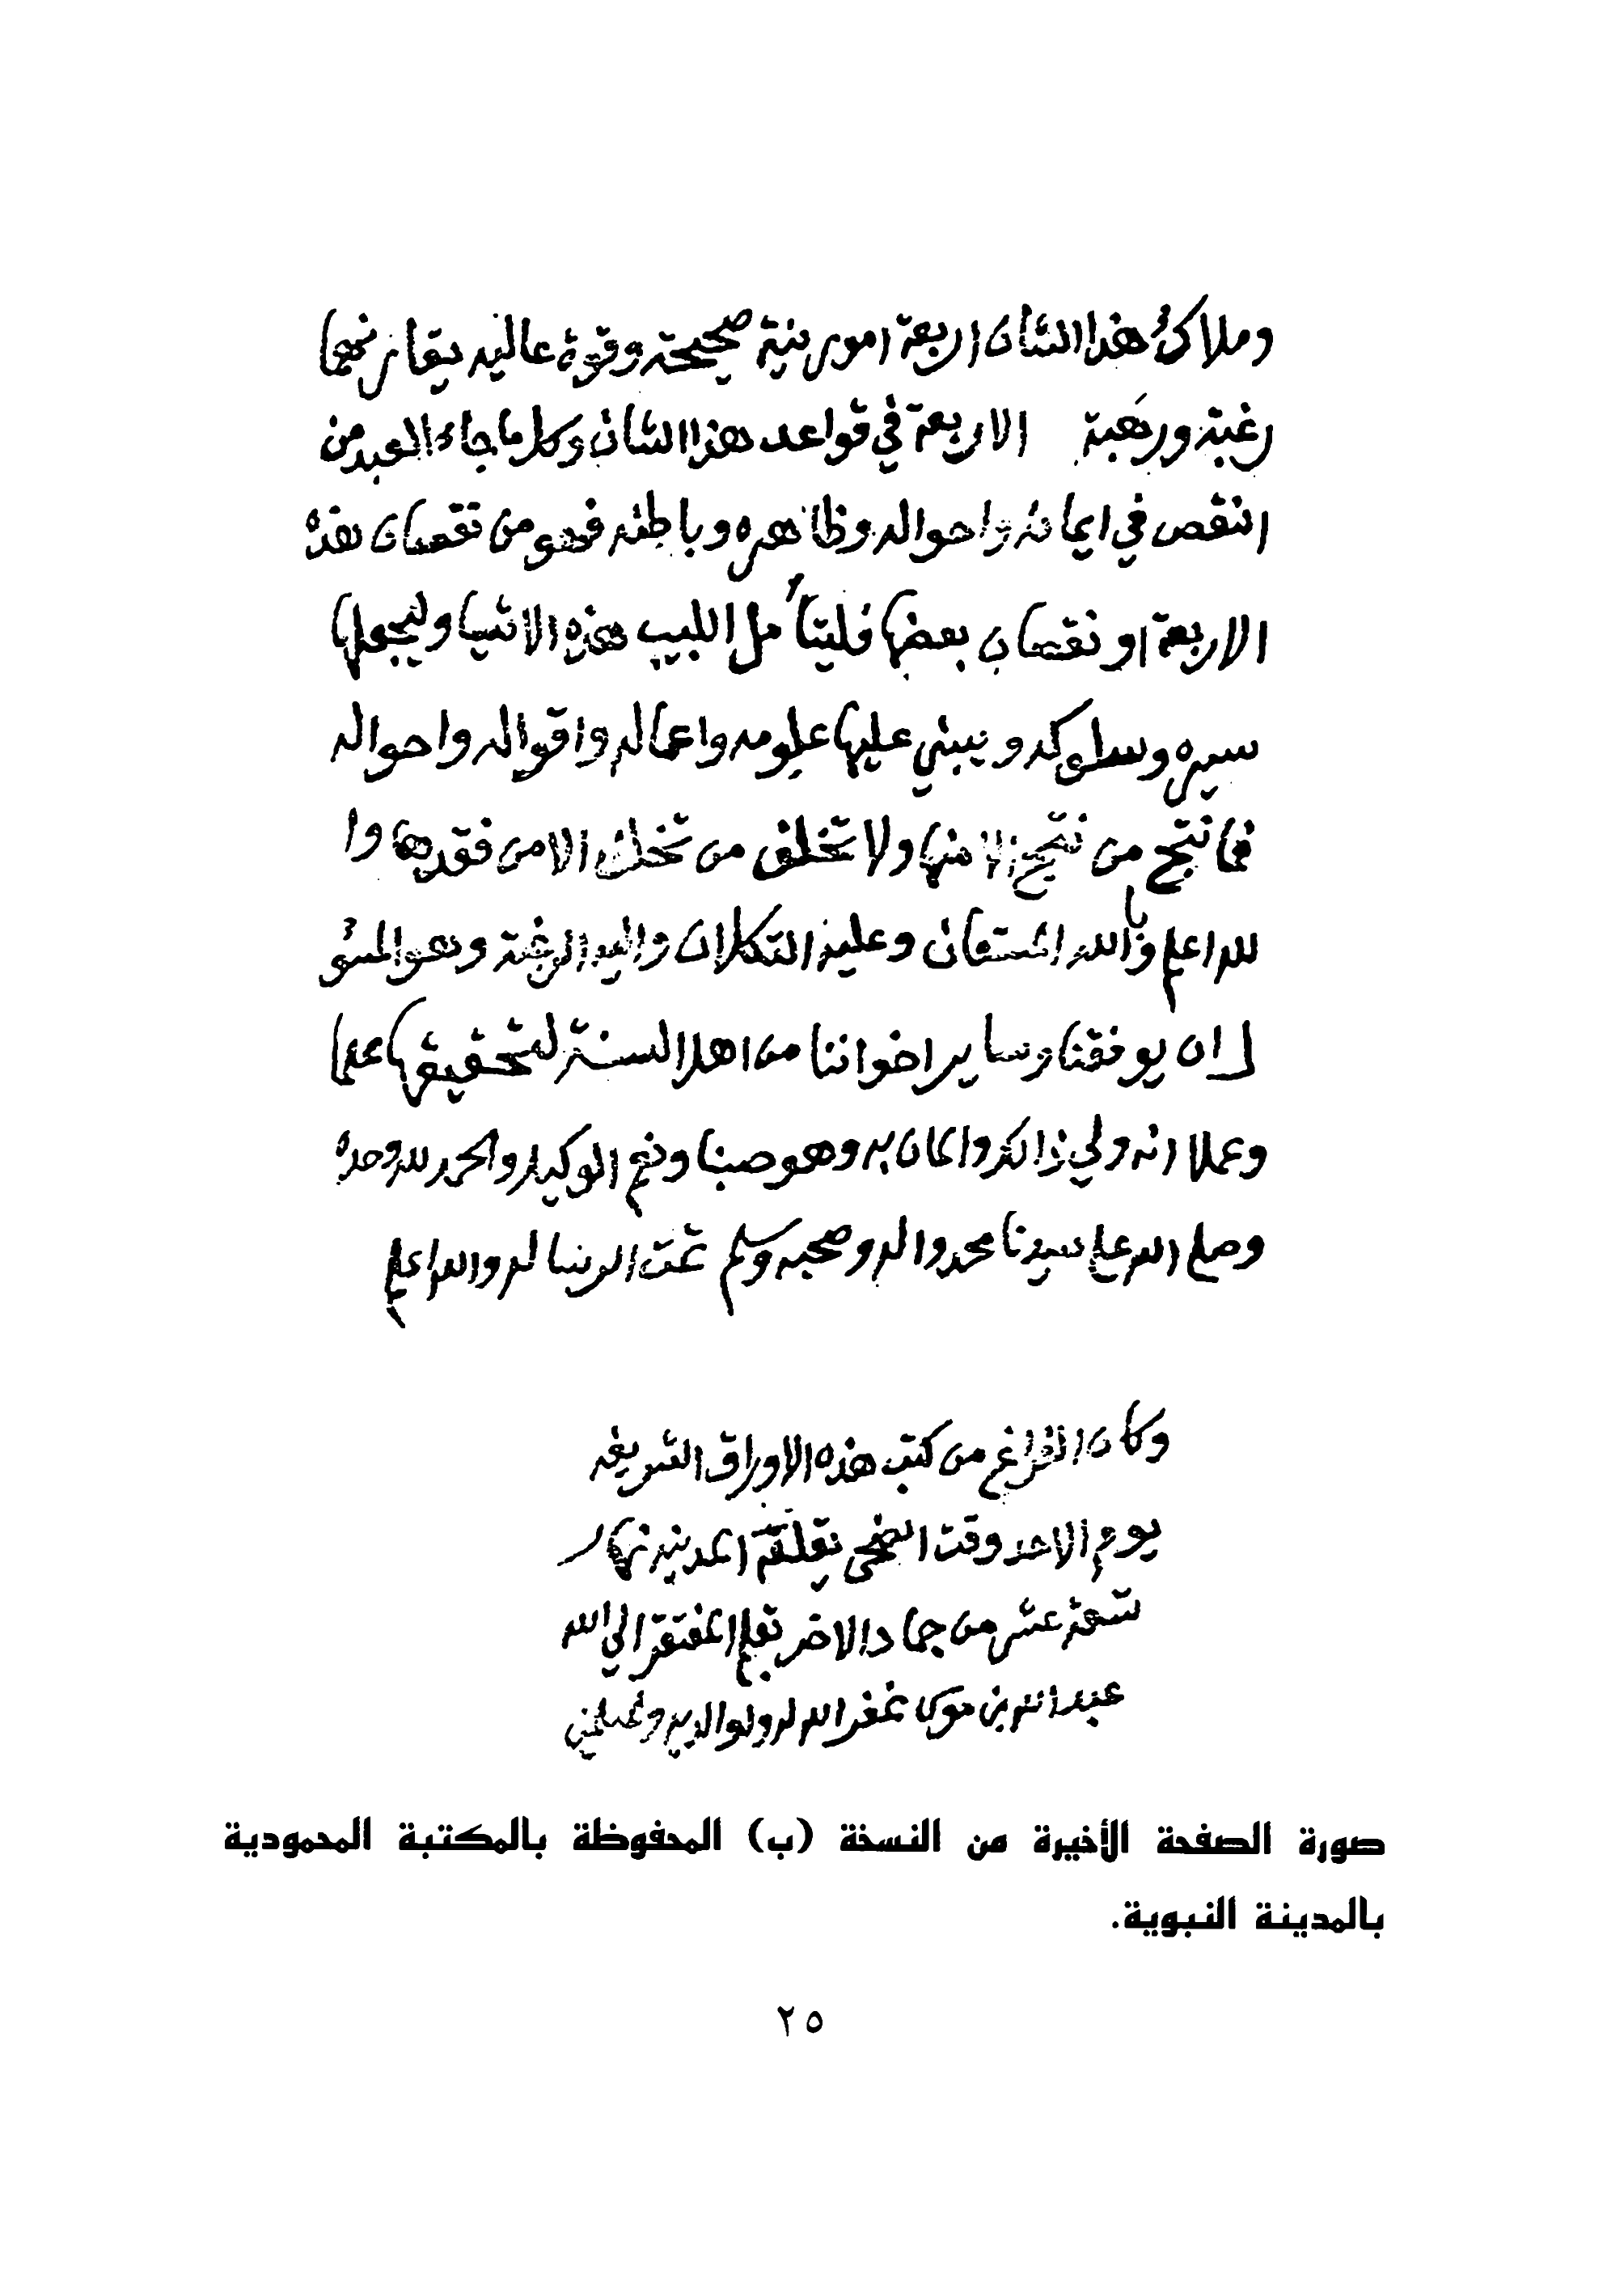 وملاكُ هذا الشان اربعة امور نية صحيحة وقوة عاليه يقارنهما
رغبة ورهبة الاربعة في قواعد هذا الشان وكل ما جاء العبد من
النقص في ايمانه واحواله وظاهره وباطنه فهو من نقصان هذه
الاربعة او نقصان بعضها فليتأمل اللبيب هذه الاشيا وليجعلها
سيره وسلوكه ويبني عليها علومه واعماله واقواله واحواله
فما نتج من نتج الا منها ولا تخلف من تخلف الا من فقدها وا
لله اعلم وبالله المستعان وعليه التكلان واليه الرغبة وهو المسؤ
ل ان يوفقنا وساير اخواننا من اهل السنة لتحقيقها علما
وعملا انه ولي ذالك والمان به وهو حسبنا ونعم الوكيل والحمد لله وحده
وصلى الله على سيدنا محمد واله وصحبه وسلم تمت الرسالة والله اعلم
وكان الفراغ من كتب هذه الاوراق الشريفه
يوم الاحد وقت الضحى المدينه نهار
تسعة عشر من جماد الاخر بقلم المفتقر الى الله
عبد الله بن موسى غفر الله له ولوالديه وللمسلمين
صورة الصفحة الأخيرة من النسخة (ب) المحفوظة بالمكتبة المحمودية
بالمدينة النبوية.
٢٥